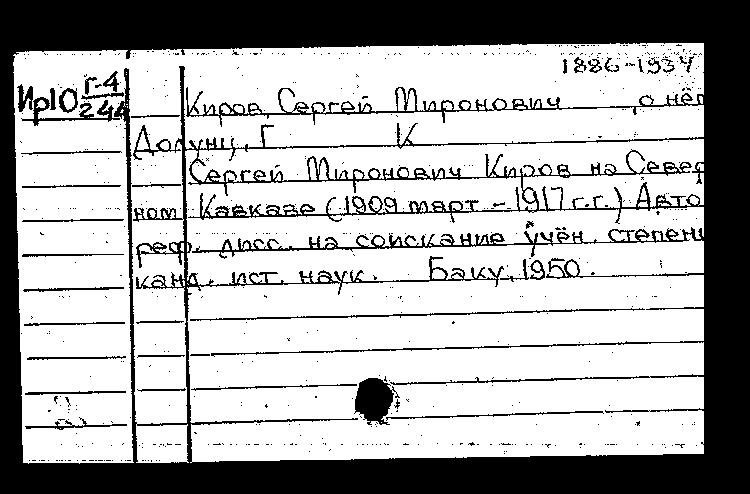 1886-1934
Ир10 Г-4 244
Киров, Сергей Миронович, о нём
Долунц, Г К
Сергей Миронович Киров на Север
ном Кавказе (1909 март - 1917 г.г.) Авто
реф. дисс. на соискание учён. степени
канд. ист. наук. Баку, 1950.